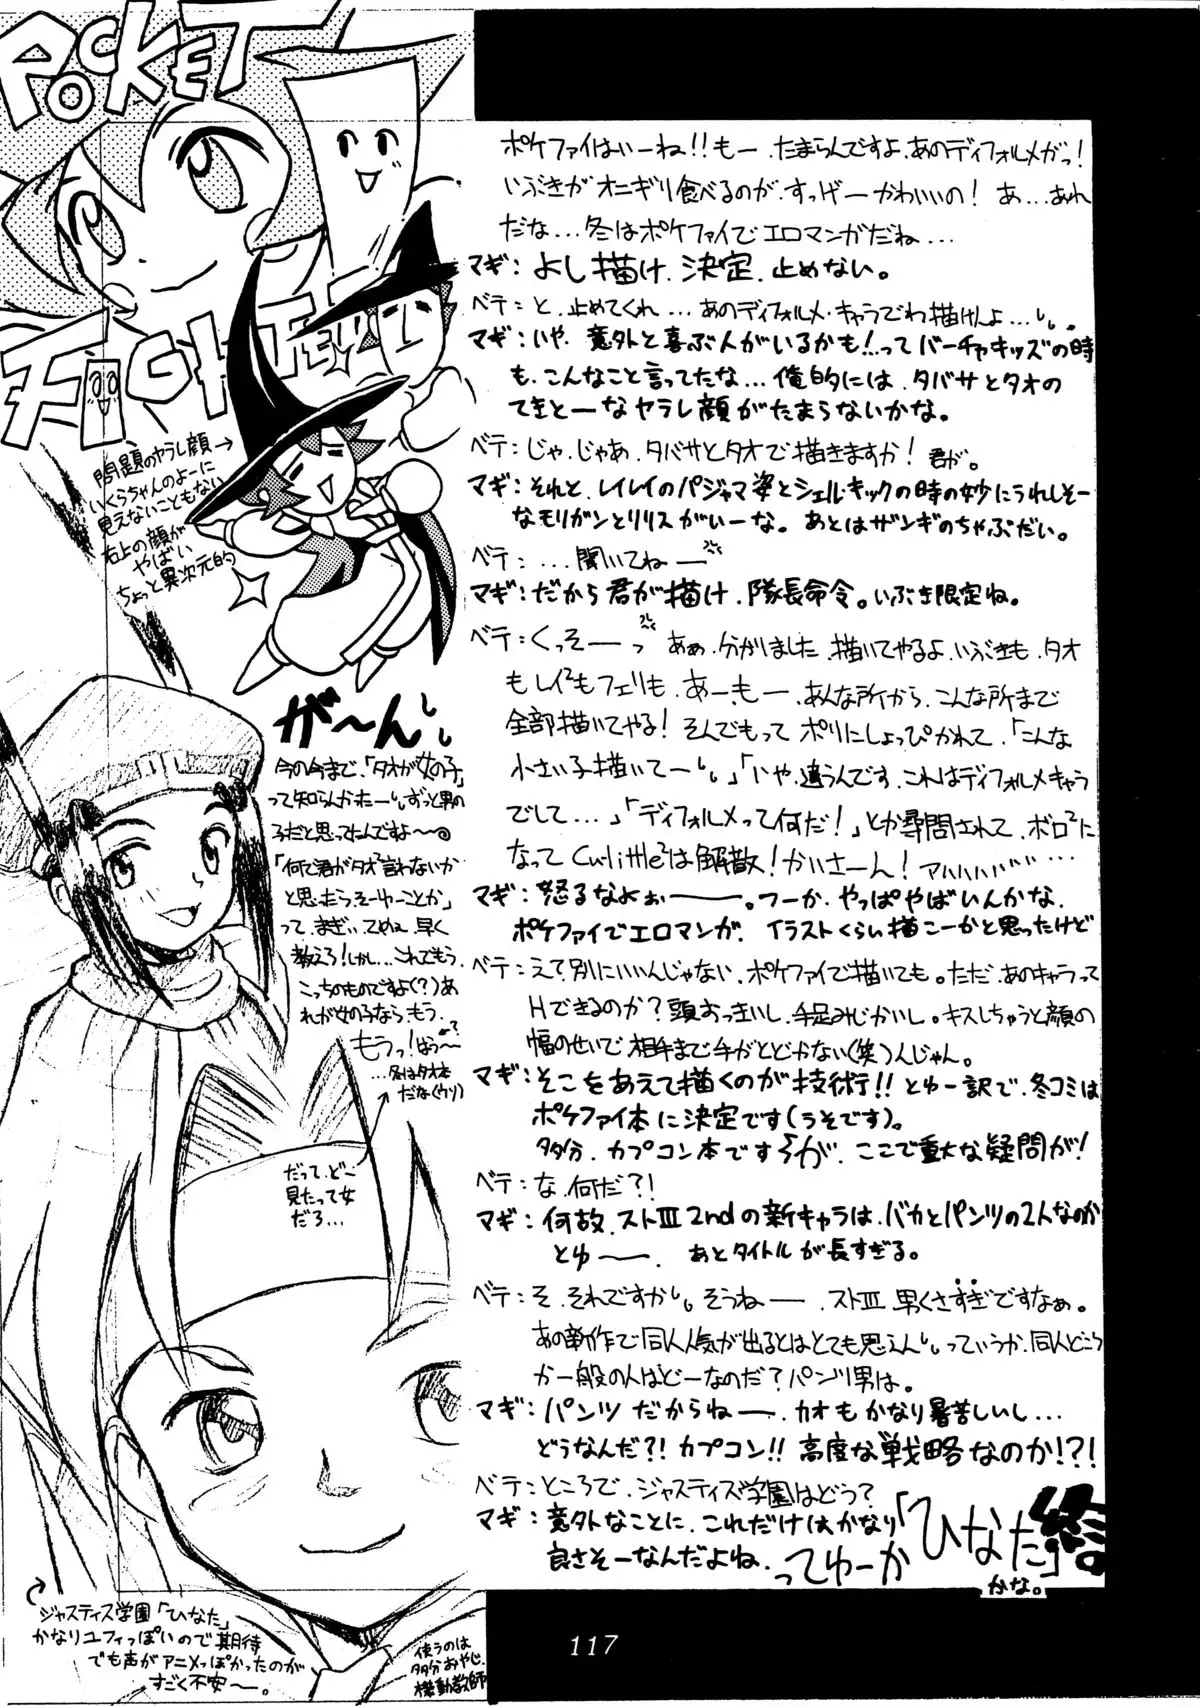 POCKET
FIGHTER
ポケファイはいーね!!もー、たまらんですよ、あのディフォルメがっ!
いぶきがオニギリ食べるのが、すっげーかわいいの! あ…あれ
だな…冬はポケファイでエロマンガだね…
マギ:よし描け、決定、止めない。
ベテ:と、止めてくれ…あのディフォルメ・キャラでわ描けんよ…。
マギ:いや、意外と喜ぶ人がいるかも!…ってバーチャキッズの時
も、こんなこと言ってたな…俺的には、タバサとタオの
てきとーなヤラレ顔がたまらないかな。
ベテ:じゃ、じゃあ、タバサとタオで描きますか! 君が。
マギ:それと、レイレイのパジャマ姿とシェルキックの時の妙にうれしそー
なモリガンとリリスがいーな。あとはザンギのちゃぶだい。
ベテ:…聞いてねー
マギ:だから君が描け、隊長命令。いぶき限定ね。
ベテ:くっそーっ あぁ、分かりました、描いてやるよ、いぶきも、タオ
もレイ²もフェリも、あーもー、あんな所から、こんな所まで
全部描いてやる! そんでもって ポリにしょっぴかれて、「こんな
小さい子描いてー」「いや、違うんです、これはディフォルメキャラ
でして…」「ディフォルメって何だ!」とか尋問されて、ボロ²に
なって Cu-little²は解散!かいさーん! アハハハハハ…
マギ:怒るなよぉー。つーか、やっぱやばいんかな、
ポケファイでエロマンガ、イラストくらい描こーかと思ったけど
ベテ:えて別にいいんじゃない、ポケファイで描いても。ただ、あのキャラって
Hできるのか?頭おっきいし、手足みじかいし。キスしちゃうと顔の
幅のせいで相手まで手がとどかない(笑)んじゃん。
マギ:そこをあえて描くのが技術!! とゆー訳で、冬コミは
ポケファイ本に決定です(うそです)。
多分、カプコン本です が、ここで重大な疑問が!
ベテ:な、何だ?!
マギ:何故、ストⅢ 2ndの新キャラは、バカとパンツの2人なのか
とゆー。 あとタイトルが長すぎる。
ベテ:そ、それですか そうねー、ストⅢ、男くさすぎですなぁ。
あの新作で同人人気が出るとはとても思えんっていうか、同人どころ
か一般の人はどーなのだ?パンツ男は。
マギ:パンツだからねー、カオもかなり暑苦しいし…
どうなんだ?!カプコン!!高度な戦略なのか!?!
ベテ:ところで、ジャスティス学園はどう?
マギ:意外なことに、これだけはかなり
良さそーなんだよね、ってゆーか「ひなた」
かな。
終
問題のヤラレ顔→
いくらちゃんのよーに
見えないこともない
右上の顔が
やばい
ちょっと異次元的
が〜ん
今の今まで、「タオが女の子」
って知らんかったーずっと男の
子だと思ってたんですよ〜
「何で君がタオ²言わないか
と思ったらそーゆーことか」
って、まぎぃ、てめぇ、早く
教えろ!しかし…これでもう、
こっちのものですよ(?)あ
れが女の子ならもう、
もうっ!ばぅ〜
…冬はタオ本
だな(ウソ)
だって、どこ
見たって女
だろ…
ジャスティス学園「ひなた」
かなりユフィっぽいので期待
でも声がアニメっぽかったのが
すごく不安〜。
使うのは
多分おやじ
機動教師
117